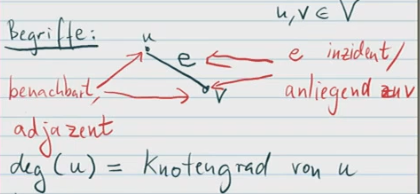 u, v ∈ V
Begriffe:
u
e
e inzident/
benachbart,
v
anliegend zu v
adjazent
deg(u) = Knotengrad von u